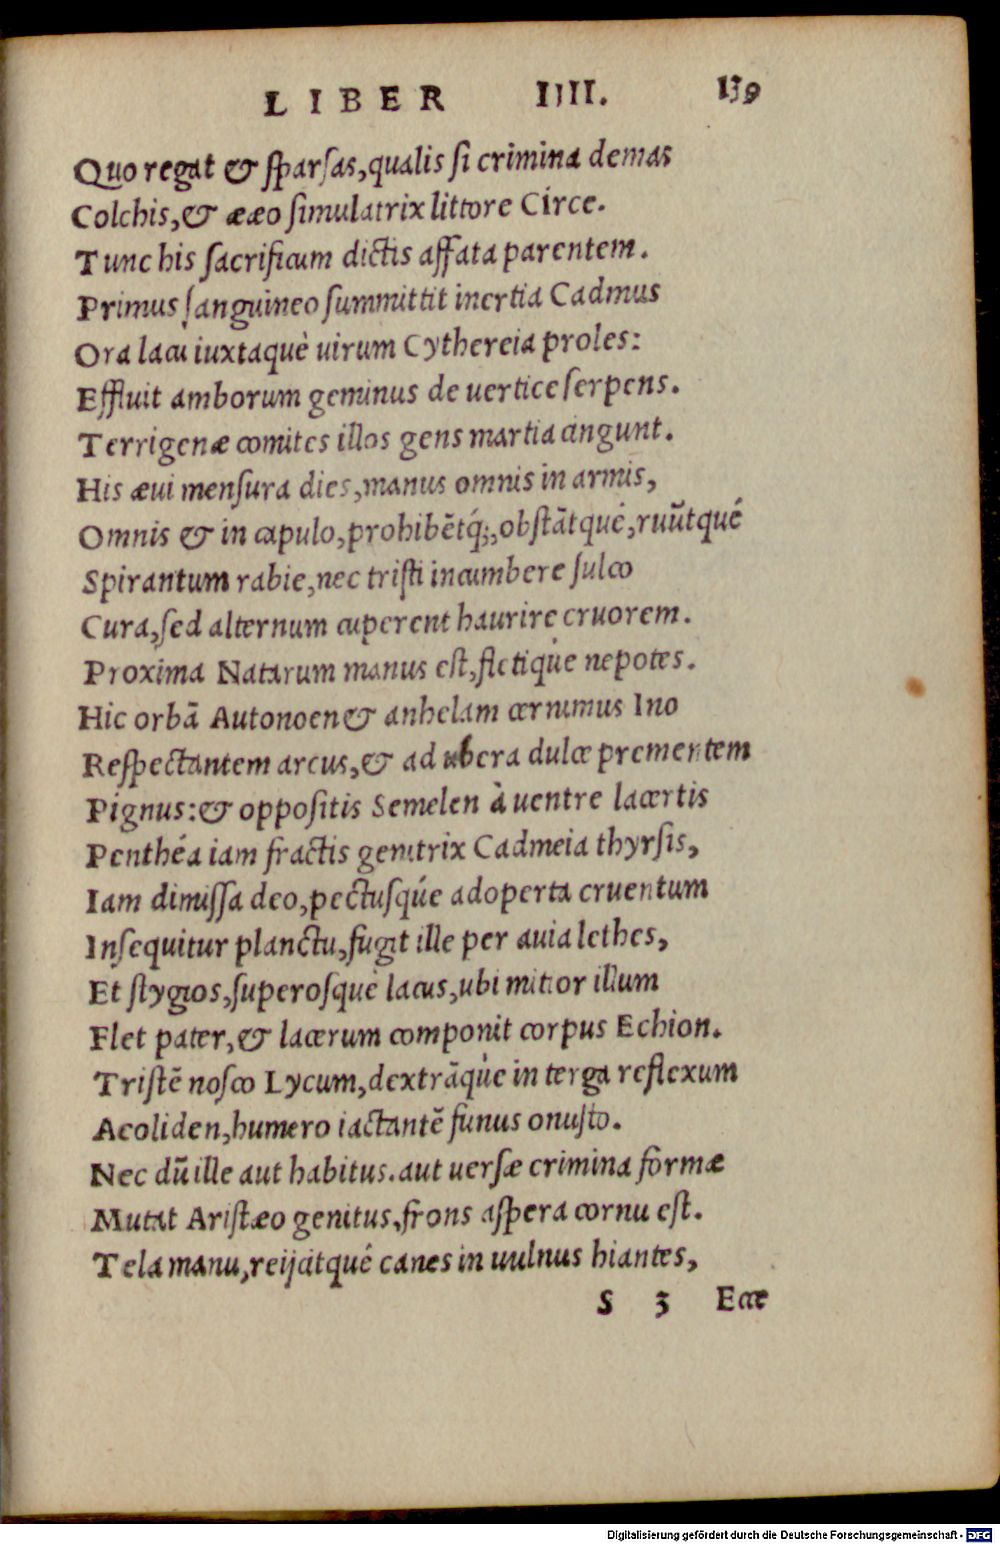 LIBER IIII. 139
Quo regat & sparsas, qualis si crimina demas
Colchis, & ææo simulatrix littore Circe.
Tunc his sacrificum dictis affata parentem.
Primus sanguineo summittit inertia Cadmus
Ora lacu iuxtaquè uirum Cythereia proles:
Effluit amborum geminus de uertice serpens.
Terrigenæ comites illos gens martia cingunt.
His æui mensura dies, manus omnis in armis,
Omnis & in capulo, prohibētq́;, obstātquè, ruūtqué
Spirantum rabie, nec tristi incumbere sulco
Cura, sed alternum cuperent haurire cruorem.
Proxima Natarum manus est, fletiqùe nepotes.
Hic orbā Autonoen & anhelam cernimus Ino
Respectantem arcus, & ad ubera dulce prementem
Pignus: & oppositis Semelen à uentre lacertis
Penthéa iam fractis genitrix Cadmeia thyrsis,
Iam dimissa deo, pectusqúe adoperta cruentum
Insequitur planctu, fugit ille per auia lethes,
Et stygios, superosquè lacus, ubi mitior illum
Flet pater, & lacerum componit corpus Echion.
Tristē nosco Lycum, dextrāqùe in terga reflexum
Aeoliden, humero iactantē funus onusto.
Nec dū ille aut habitus. aut uersæ crimina formæ
Mutat Aristæo genitus, frons aspera cornu est.
Tela manu, reijcitqué canes in uulnus hiantes,
S 3 Ecce
Digitalisierung gefördert durch die Deutsche Forschungsgemeinschaft - DFG